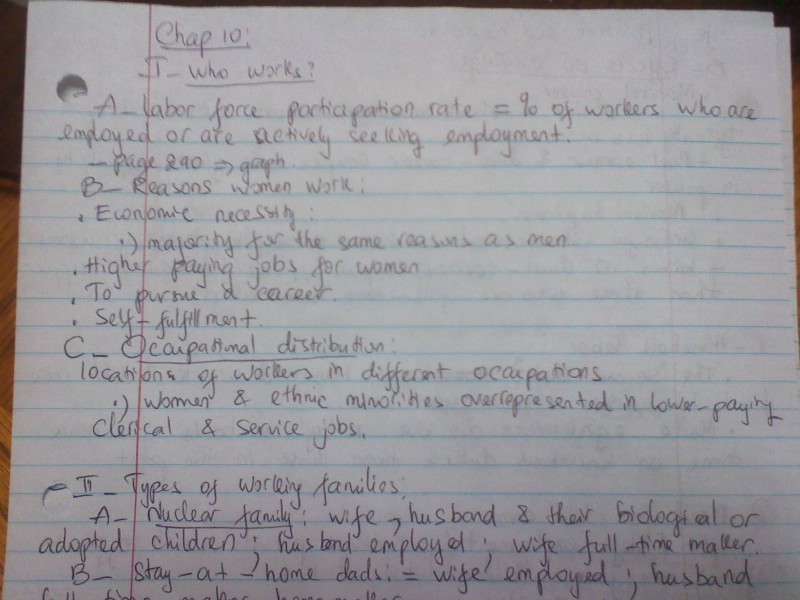 Chap 10:
I- Who works?
A- labor force participation rate = % of workers who are
employed or are actively seeking employment.
- page 290 => graph
B- Reasons women work:
. Economic necessity:
.) majority for the same reasons as men
. Higher paying jobs for women
. To pursue a career.
. Self-fulfillment.
C- Occupational distribution:
locations of workers in different occupations
.) women & ethnic minorities overrepresented in lower-paying
clerical & service jobs.
II- Types of working families:
A- Nuclear family: wife, husband & their biological or
adopted children; husband employed; wife full-time maker.
B- stay-at-home dads: = wife employed; husband